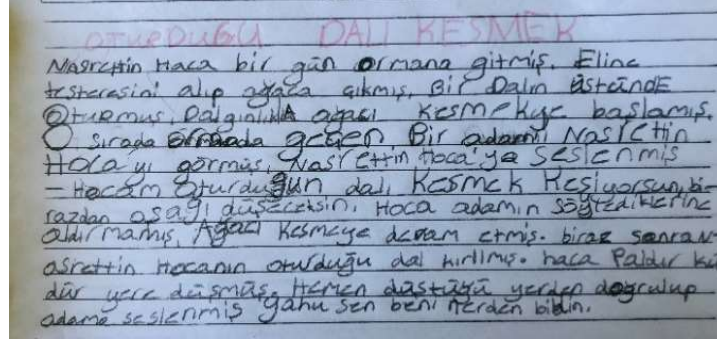 OTURDUĞU DALI KESMEK
Nasrettin Haca bir gün ormana gitmiş. Eline
testeresini alıp ağaca çıkmış, Bir Dalın üstünde
Oturmuş. Dalgınlıkla ağacı kesmekye başlamış.
O sırada ormada geçen Bir adamı Nasrettin
Hoca'yı görmüş, Nasrettin Hoca'ya seslenmiş
- Hocam Oturduğun dalı Kesmek Kesiyorsun, bi-
razdan aşağı düşeceksin. Hoca adamın söylediklerine
aldırmamış, Ağacı kesmeye devam etmiş. biraz sonran
asrettin Hocanın oturduğu dal kırılmış. haca Paldır kü
dür yere düşmüş. Hemen düştüğü yerden doğrulup
adama seslenmiş yahu sen beni nerden bildin.